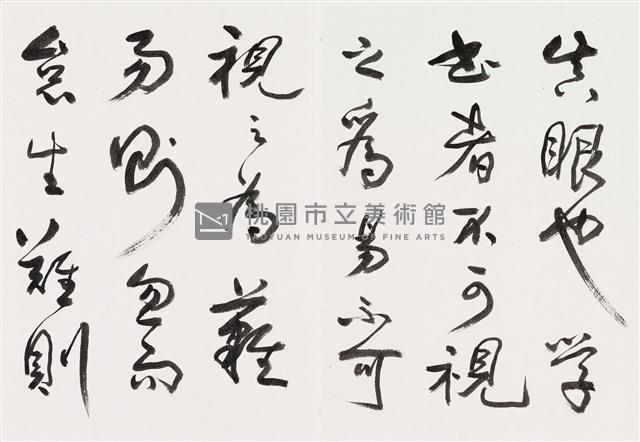 真眼也学
書者不可視
之爲易不可
視之為難
易則忽而
怠生難則
桃園市立美術館
TAOYUAN MUSEUM OF FINE ARTS